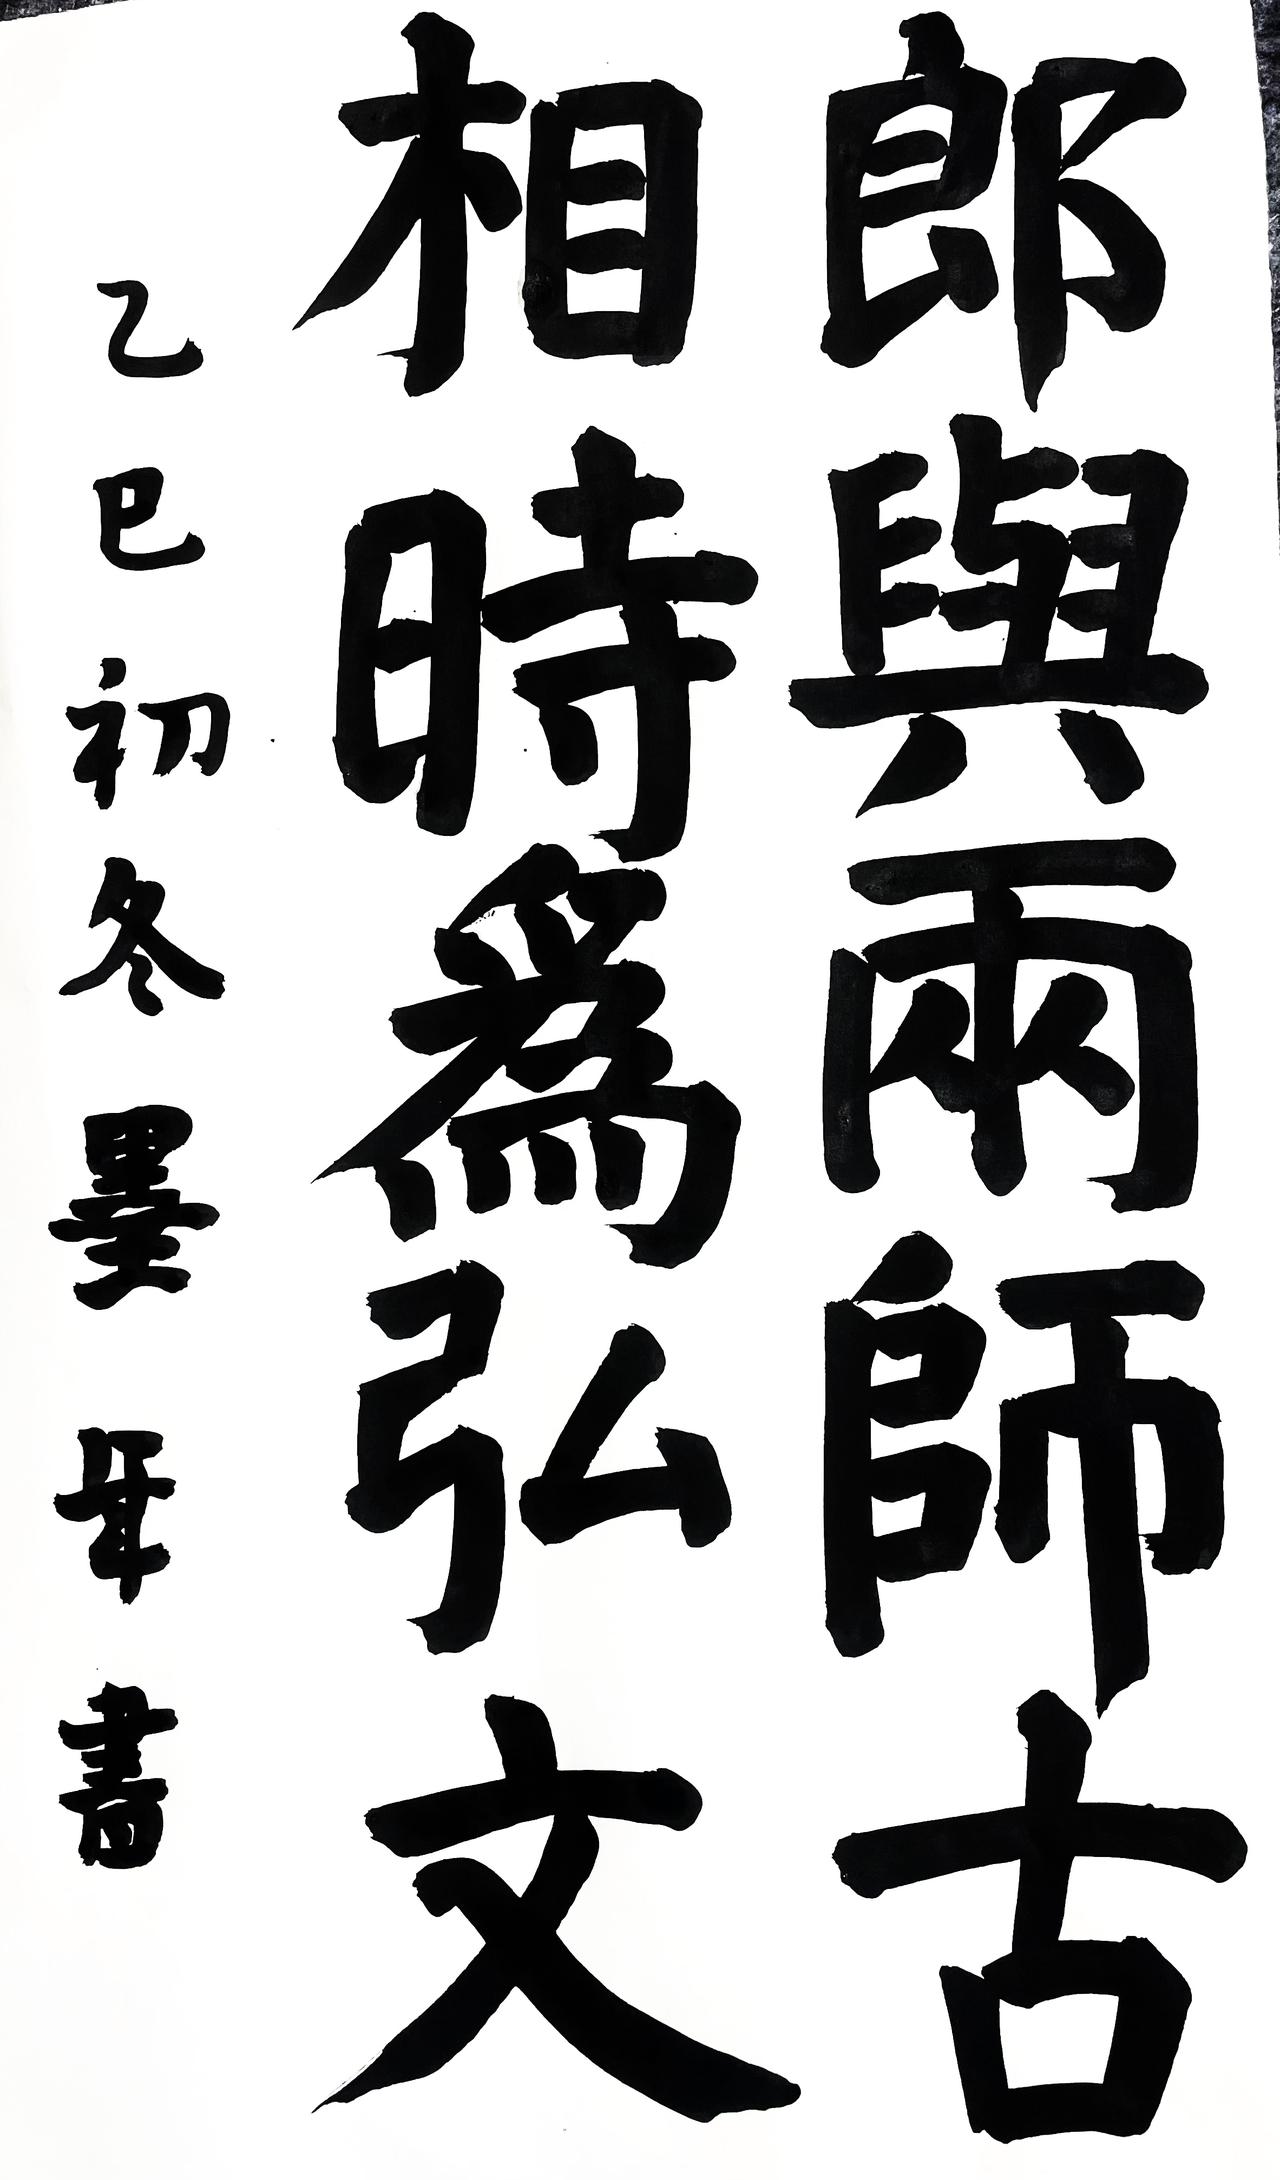 郎與兩師古
相時為弘文
乙巳初冬墨年書